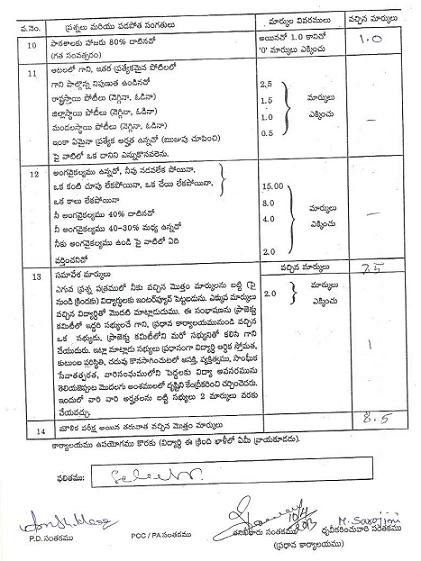 వ.నెం. ప్రశ్నలు మరియు పడపోత సంగతులు మార్కుల వివరములు వచ్చిన మార్కులు
10 పాఠశాలకు హాజరు 80% దాటినదో అయినచో 1.0 కానిచో 1.0
(గత సంవత్సరం) '0' మార్కులు ఎక్కించు
11 ఆటలలో గాని, ఇతర ప్రత్యేకమైన పోటీలలో
గాని పాల్గొన్న నిపుణత ఉండినదో 2.5
రాష్ట్రస్థాయి పోటీలు (నెగ్గినా, ఓడినా) 1.5 మార్కులు
జిల్లాస్థాయి పోటీలు (నెగ్గినా, ఓడినా) 1.0 ఎక్కించు —
మండలస్థాయి పోటీలు (నెగ్గినా, ఓడినా) 0.5
ఇంకా ఏమైనా ప్రత్యేక అర్హత ఉన్నదో (ఋజువు చూపించి)
పై వాటిలో ఒక దానిని ఎన్నుకొనవలెను.
12 అంగవైకల్యము ఉన్నదో, నీవు నడవలేక పోయినా,
ఒక కంటి చూపు లేకపోయినా, ఒక చేయి లేకపోయినా, 15.00
ఒక కాలు లేకపోయినా 8.0 మార్కులు
నీ అంగవైకల్యము 40% దాటినదో 4.0 ఎక్కించు —
నీ అంగవైకల్యము 40-30% మధ్య ఉన్నదో
నీకు అంగవైకల్యము ఉండి పై వాటిలో ఏది 2.0
వర్తించనిచో
13 సమావేశ మార్కులు వచ్చిన మార్కులు 7.5
ఎగువ ప్రశ్న పత్రములో నీకు వచ్చిన మొత్తం మార్కులను బట్టి (పై 2.0 మార్కులు
నుండి క్రిందకు) విద్యార్థులకు ఇంటర్వ్యూ పెట్టబడును. ఎక్కువ మార్కులు ఎక్కించు
వచ్చిన విద్యార్థితో మొదట మాట్లాడుదుము. ఈ సంభాషణను ప్రాజెక్ట్
కమిటీలో ఇద్దరి సభ్యులచే గాని, ప్రధాన కార్యాలయమునుండి వచ్చిన
ఒక సభ్యుడు, ప్రాజెక్ట్ కమిటీలోని మరో సభ్యునితో కలిసి గాని
చేయుదురు. ఇట్లా మాట్లాడు సభ్యులు ప్రధానంగా విద్యార్థి ఆర్థిక స్తోమత,
కుటుంబ పరిస్థితి, చదువు కొనసాగించుటలో ఆసక్తి, వ్యక్తిత్వము, సాంఘిక 1
సేవాతత్పరత, వారిసంఘములోని పెద్దలకు విద్య అవసరమును
తెలియజెప్పుట మొదలగు అంశములలో దృష్టిని కేంద్రీకరించి చర్చించెదరు.
ఇందులో వారి వారి అర్హతలను బట్టి సభ్యులు 2 మార్కులు వరకు
వేయవచ్చు.
14 మౌఖిక పరీక్ష అయిన తరువాత వచ్చిన మొత్తం మార్కులు 8.5
కార్యాలయము ఉపయోగము కొరకు (విద్యార్థి ఈ క్రింది ఖాళీలో ఏమీ వ్రాయకూడదు).
ఫలితము:
10/4
2013 M. Sarojini
P.D. సంతకము PCC / PA సంతకము తనిఖీదారు సంతకము ధృవీకరించువారి సంతకము
(ప్రధాన కార్యాలయము)